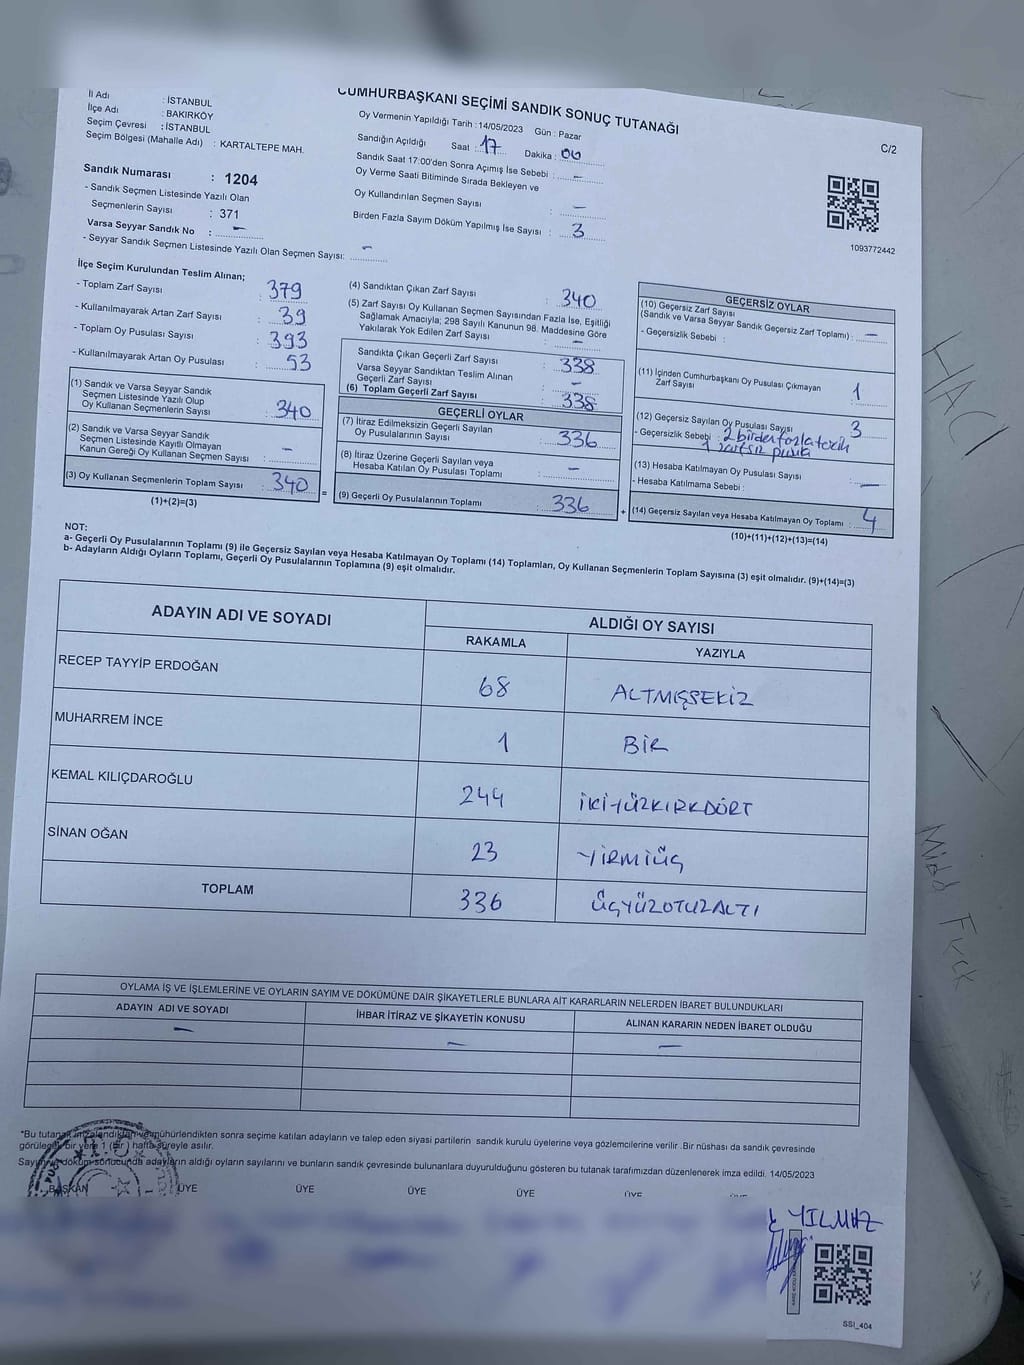 CUMHURBAŞKANI SEÇİMİ SANDIK SONUÇ TUTANAĞI
C/2
İl Adı : İSTANBUL
İlçe Adı : BAKIRKÖY
Seçim Çevresi : İSTANBUL
Seçim Bölgesi (Mahalle Adı) : KARTALTEPE MAH.
Sandık Numarası : 1204
- Sandık Seçmen Listesinde Yazılı Olan
Seçmenlerin Sayısı : 371
Varsa Seyyar Sandık No : –
- Seyyar Sandık Seçmen Listesinde Yazılı Olan Seçmen Sayısı: –
Oy Vermenin Yapıldığı Tarih : 14/05/2023 Gün : Pazar
Sandığın Açıldığı Saat : 17 Dakika : 00
Sandık Saat 17:00'den Sonra Açımış İse Sebebi : –
Oy Verme Saati Bitiminde Sırada Bekleyen ve
Oy Kullandırılan Seçmen Sayısı : –
Birden Fazla Sayım Döküm Yapılmış İse Sayısı : 3
1093772442
İlçe Seçim Kurulundan Teslim Alınan;
- Toplam Zarf Sayısı : 379
- Kullanılmayarak Artan Zarf Sayısı : 39
- Toplam Oy Pusulası Sayısı : 393
- Kullanılmayarak Artan Oy Pusulası : 53
(1) Sandık ve Varsa Seyyar Sandık
Seçmen Listesinde Yazılı Olup
Oy Kullanan Seçmenlerin Sayısı : 340
(2) Sandık ve Varsa Seyyar Sandık
Seçmen Listesinde Kayıtlı Olmayan
Kanun Gereği Oy Kullanan Seçmen Sayısı : –
(3) Oy Kullanan Seçmenlerin Toplam Sayısı : 340
(1)+(2)=(3)
=
(4) Sandıktan Çıkan Zarf Sayısı : 340
(5) Zarf Sayısı Oy Kullanan Seçmen Sayısından Fazla İse, Eşitliği
Sağlamak Amacıyla; 298 Sayılı Kanunun 98. Maddesine Göre
Yakılarak Yok Edilen Zarf Sayısı : –
Sandıkta Çıkan Geçerli Zarf Sayısı : 338
Varsa Seyyar Sandıktan Teslim Alınan
Geçerli Zarf Sayısı : –
(6) Toplam Geçerli Zarf Sayısı : 338
GEÇERLİ OYLAR
(7) İtiraz Edilmeksizin Geçerli Sayılan
Oy Pusulalarının Sayısı : 336
(8) İtiraz Üzerine Geçerli Sayılan veya
Hesaba Katılan Oy Pusulası Toplamı : –
(9) Geçerli Oy Pusulalarının Toplamı : 336
+
GEÇERSİZ OYLAR
(10) Geçersiz Zarf Sayısı
(Sandık ve Varsa Seyyar Sandık Geçersiz Zarf Toplamı) : –
- Geçersizlik Sebebi :
(11) İçinden Cumhurbaşkanı Oy Pusulası Çıkmayan
Zarf Sayısı : 1
(12) Geçersiz Sayılan Oy Pusulası Sayısı : 3
- Geçersizlik Sebebi : 2 birden fazla tercih
1 zarfsız pusula
(13) Hesaba Katılmayan Oy Pusulası Sayısı : –
- Hesaba Katılmama Sebebi :
(14) Geçersiz Sayılan veya Hesaba Katılmayan Oy Toplamı : 4
(10)+(11)+(12)+(13)=(14)
NOT:
a- Geçerli Oy Pusulalarının Toplamı (9) ile Geçersiz Sayılan veya Hesaba Katılmayan Oy Toplamı (14) Toplamları, Oy Kullanan Seçmenlerin Toplam Sayısına (3) eşit olmalıdır. (9)+(14)=(3)
b- Adayların Aldığı Oyların Toplamı, Geçerli Oy Pusulalarının Toplamına (9) eşit olmalıdır.
ADAYIN ADI VE SOYADI
ALDIĞI OY SAYISI
RAKAMLA YAZIYLA
RECEP TAYYİP ERDOĞAN 68 ALTMIŞSEKİZ
MUHARREM İNCE 1 BİR
KEMAL KILIÇDAROĞLU 244 İKİYÜZKIRKDÖRT
SİNAN OĞAN 23 YİRMİÜÇ
TOPLAM 336 ÜÇYÜZOTUZALTI
OYLAMA İŞ VE İŞLEMLERİNE VE OYLARIN SAYIM VE DÖKÜMÜNE DAİR ŞİKAYETLERLE BUNLARA AİT KARARLARIN NELERDEN İBARET BULUNDUKLARI
ADAYIN ADI VE SOYADI İHBAR İTİRAZ VE ŞİKAYETİN KONUSU ALINAN KARARIN NEDEN İBARET OLDUĞU
– – –
*Bu tutanak imzalandıktan ve mühürlendikten sonra seçime katılan adayların ve talep eden siyasi partilerin sandık kurulu üyelerine veya gözlemcilerine verilir .Bir nüshası da sandık çevresinde
görülecek bir yere 1 (bir ) hafta süreyle asılır.
Sayım ve döküm sonucunda adayların aldığı oyların sayılarını ve bunların sandık çevresinde bulunanlara duyurulduğunu gösteren bu tutanak tarafımızdan düzenlenerek imza edildi. 14/05/2023
BAŞKAN ÜYE ÜYE ÜYE ÜYE ÜYE ÜYE
T.C.
YILMAZ
SSI_404
HACI